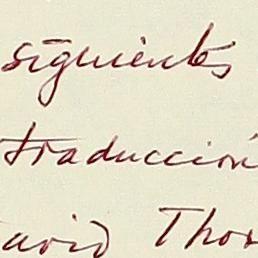 siguientes
traducción
David Thom